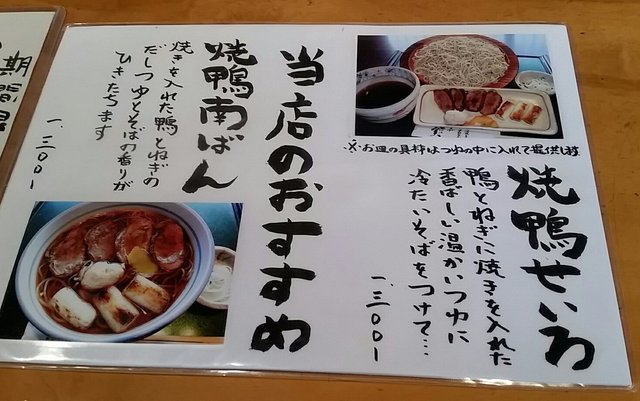 焼鴨せいろ
※お皿の具材はつゆの中に入れて提供し〼
鴨とねぎに焼きを入れた
香ばしい温かいつゆに
冷たいそばをつけて…
一、三〇〇円
当店のおすすめ
焼鴨南ばん
焼きを入れた鴨とねぎの
だしつゆとそばの香りが
ひきたちます
一、三〇〇円
期間